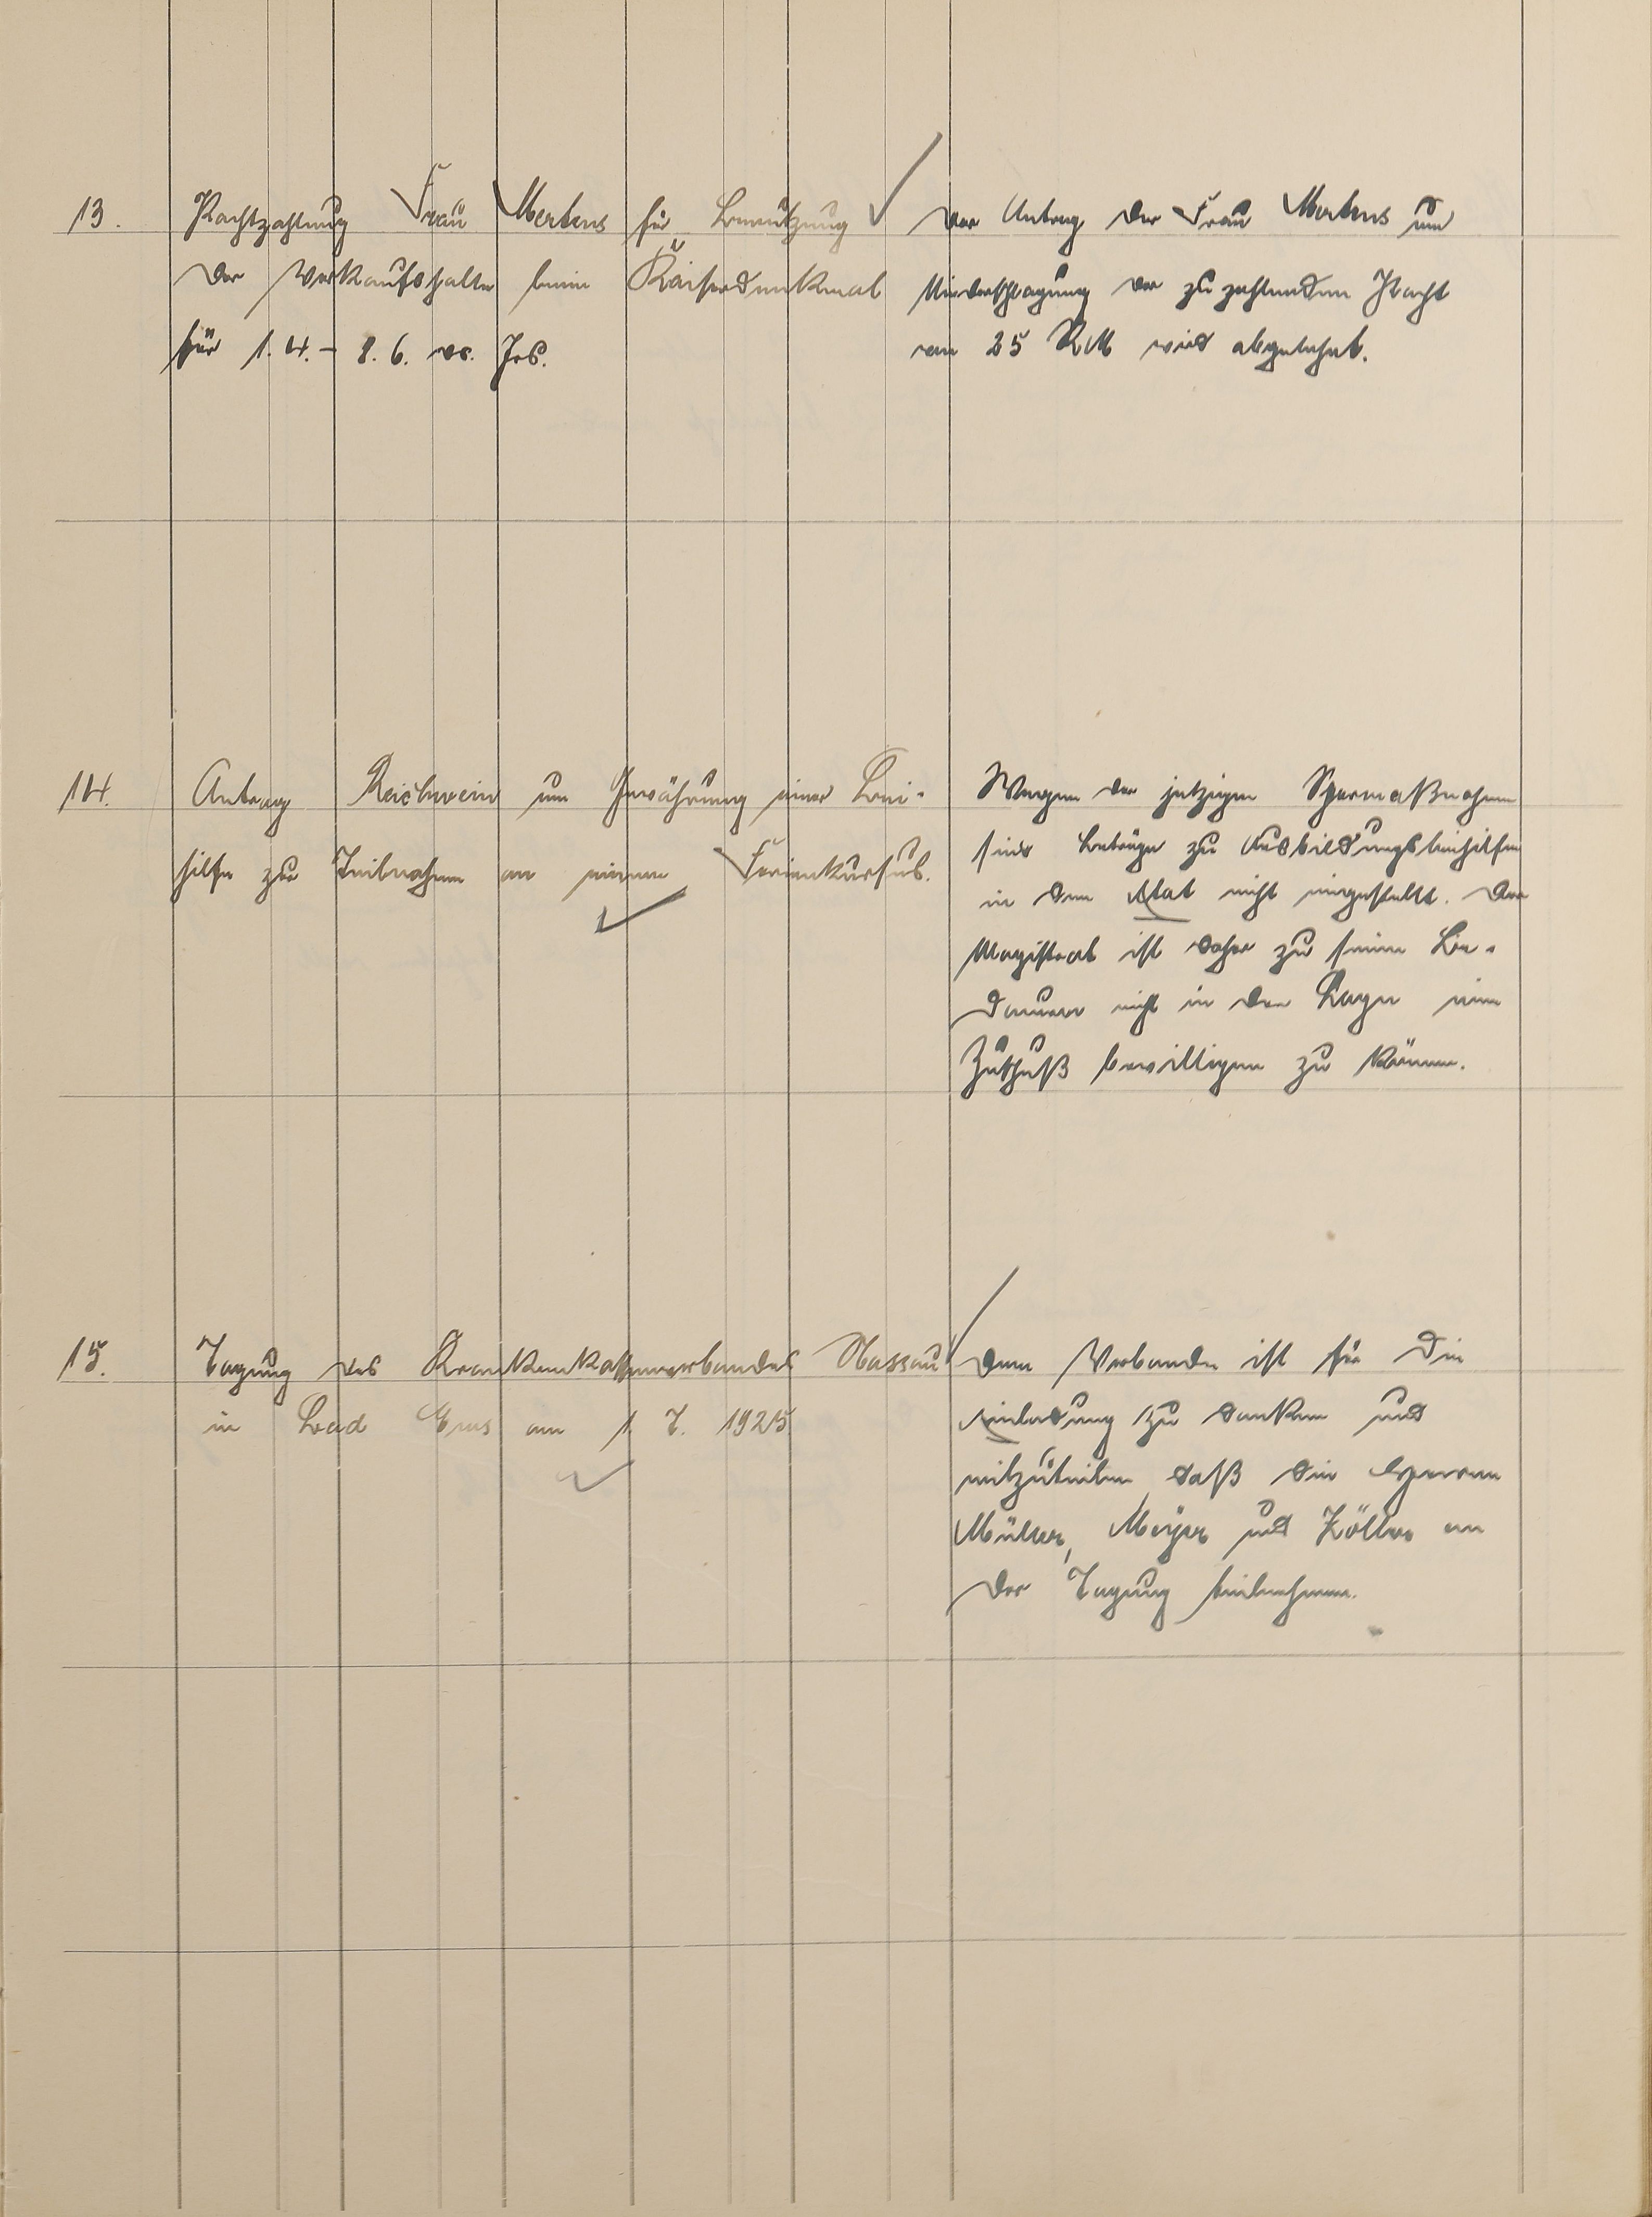 13.
Pachtzahlung Frau Mertens für Benützung
der Verkaufshalle beim Kaiserdenkmal
für 1. 4. - 8. 6. ds. Jrs.
Der Antrag der Frau Mertens um
Niederschlagung der zu zahlenden Pacht
von 25 RM wird abgelehnt.
14.
Antrag Reichwein um Gewährung einer Bei-
hilfe zur Teilnahme an einem Ferienkursus.
Wegen der jetzigen Sparmaßnahmen
sind Beträge zu Ausbildungsbeihilfen
in den Etat nicht eingestellt. Der
Magistrat ist daher zu seinem Be-
dauern nicht in der Lage einen
Zuschuß bewilligen zu können.
15.
Tagung des Krankenkassenverbandes Nassau
in Bad Ems am 1. 7. 1925
Dem Verbande ist für die
Einladung zu danken und
mitzuteilen, daß die Herren
Müller, Meyer und Zöller an
der Tagung teilnehmen.